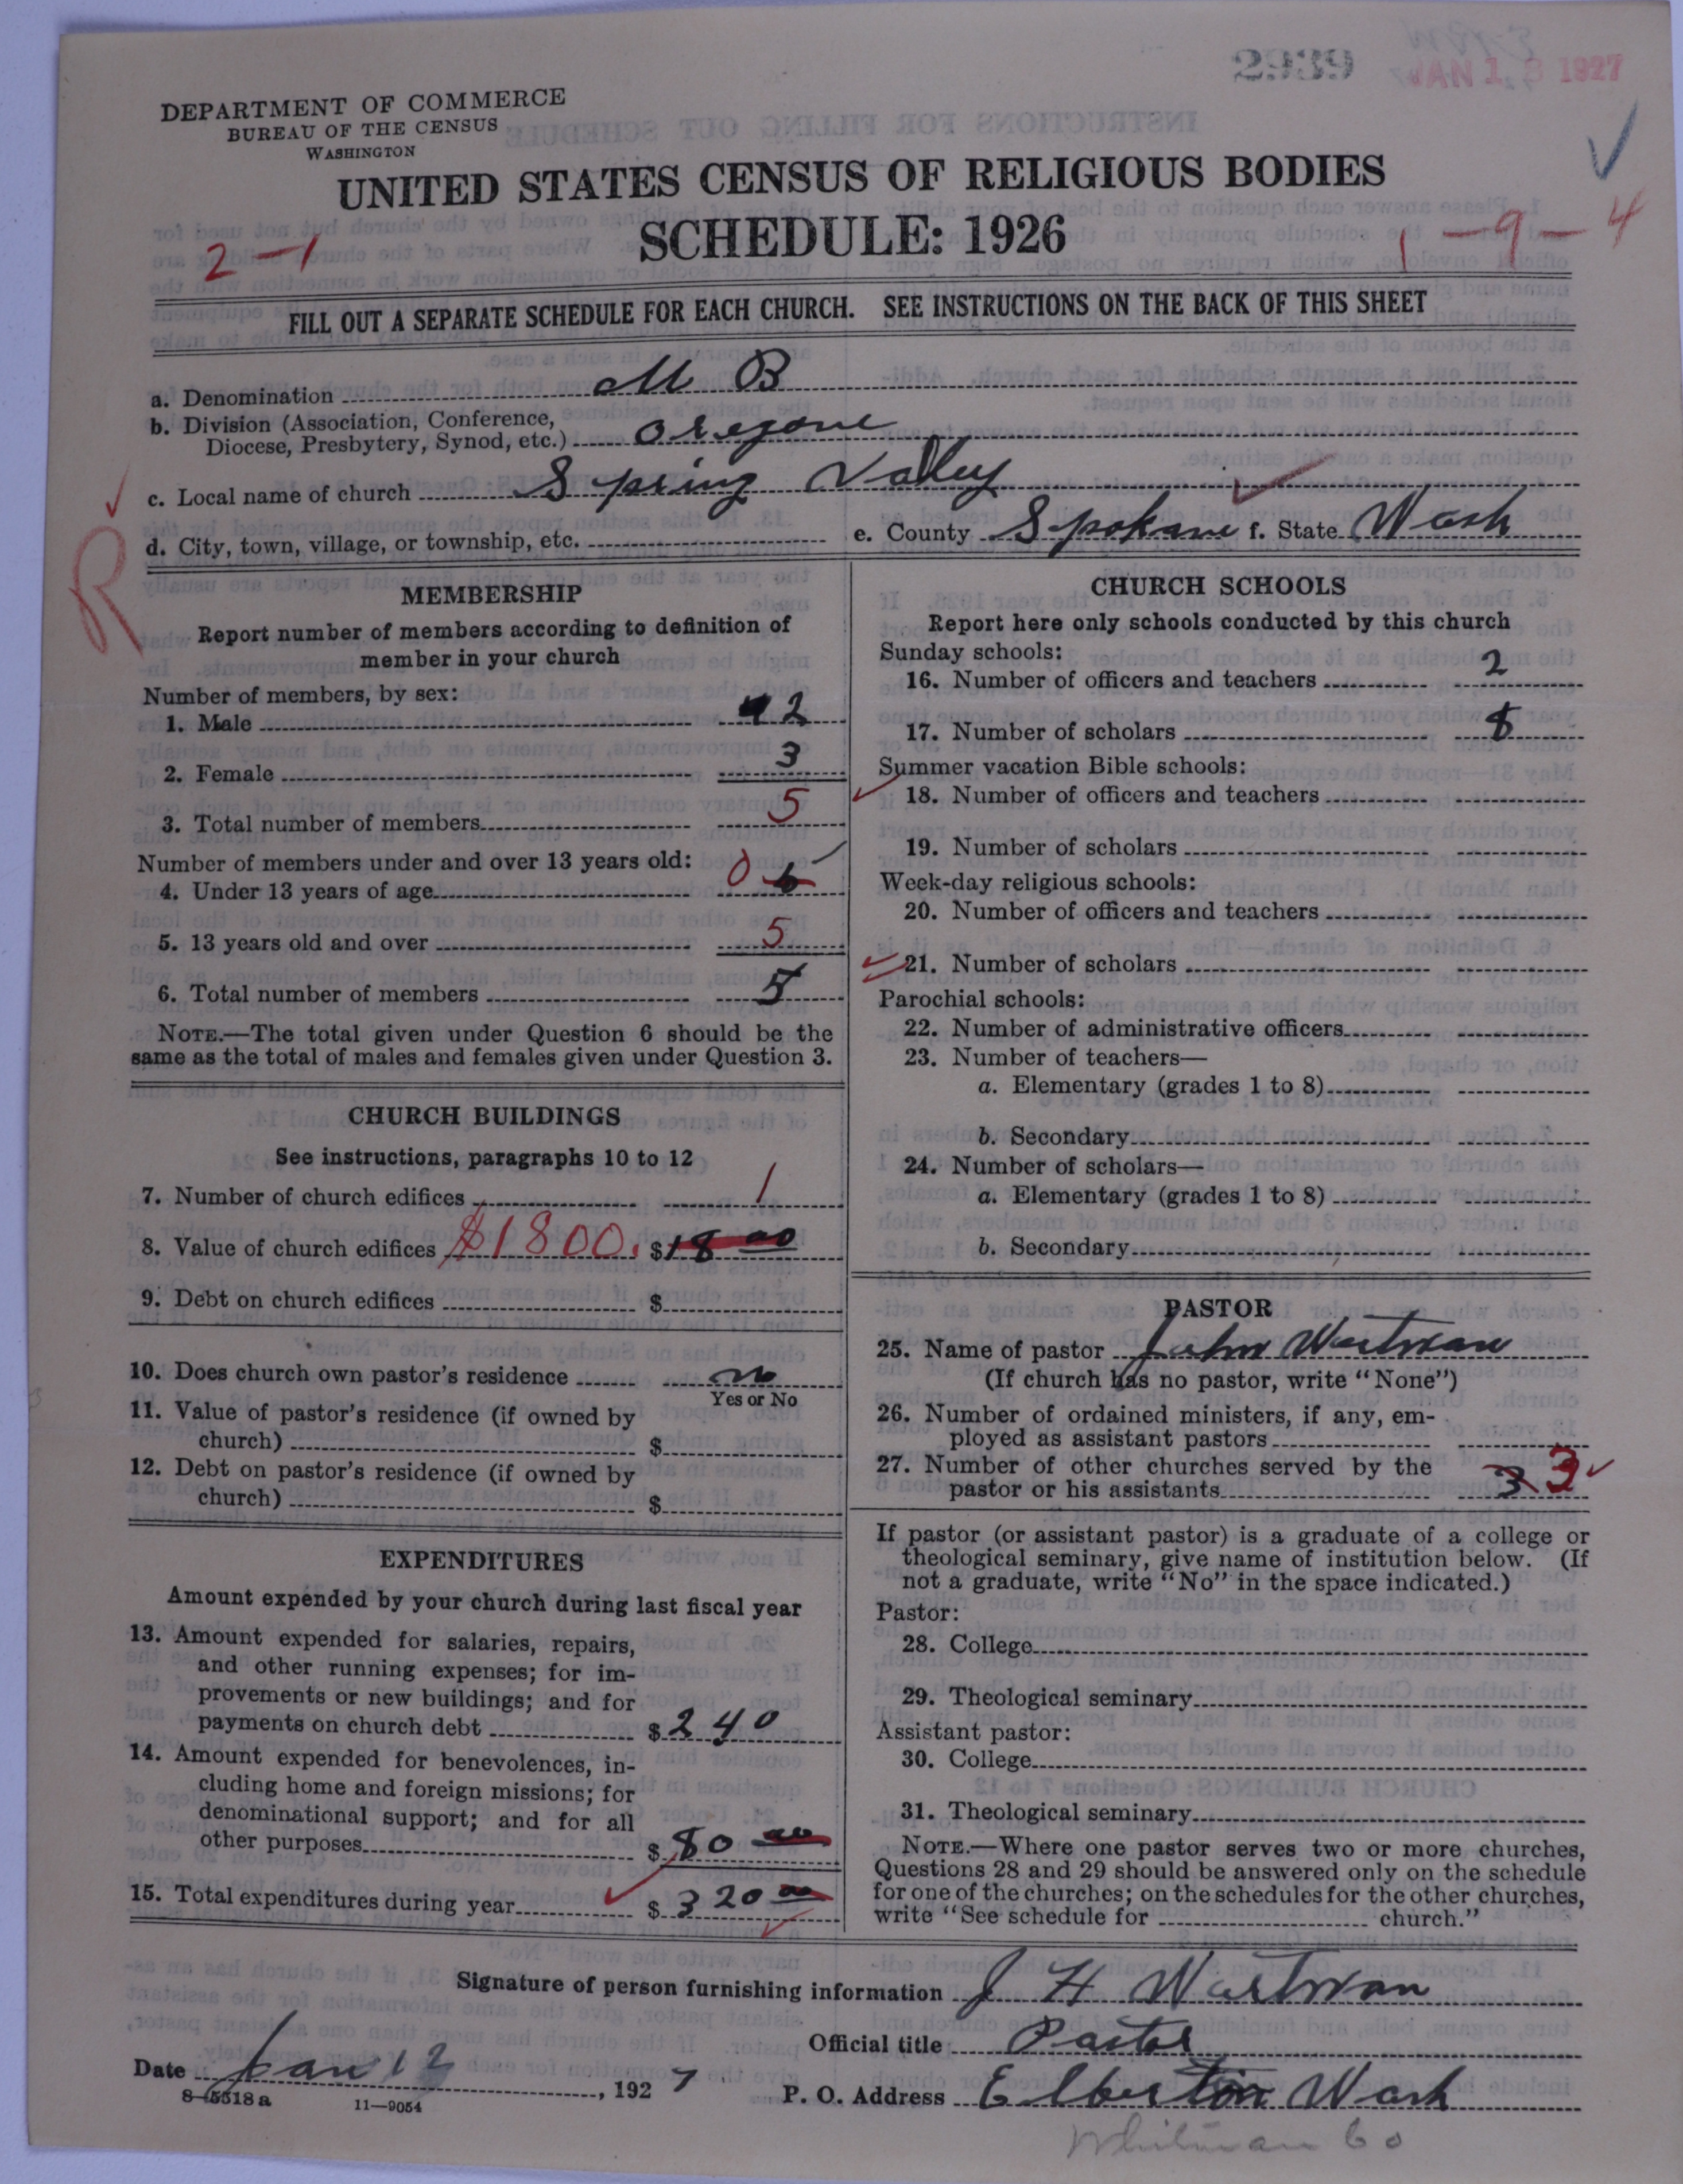 2939
JAN 13 1927
DEPARTMENT OF COMMERCE
BUREAU OF THE CENSUS
WASHINGTON
UNITED STATES CENSUS OF RELIGIOUS BODIES
SCHEDULE: 1926
2-1
1-9-4
FILL OUT A SEPARATE SCHEDULE FOR EACH CHURCH. SEE INSTRUCTIONS ON THE BACK OF THIS SHEET
a. Denomination M B
b. Division (Association, Conference,
Diocese, Presbytery, Synod, etc.) Oregone
c. Local name of church Spring Valley
R
d. City, town, village, or township, etc. e. County Spokane f. State Wash
MEMBERSHIP
Report number of members according to definition of
member in your church
Number of members, by sex:
1. Male 2
2. Female 3
3. Total number of members 5
Number of members under and over 13 years old:
4. Under 13 years of age 0
5. 13 years old and over 5
6. Total number of members 5
NOTE.—The total given under Question 6 should be the
same as the total of males and females given under Question 3.
CHURCH BUILDINGS
See instructions, paragraphs 10 to 12
7. Number of church edifices 1
8. Value of church edifices $1800. $18 00
9. Debt on church edifices $
10. Does church own pastor's residence no
Yes or No
11. Value of pastor's residence (if owned by
church) $
12. Debt on pastor's residence (if owned by
church) $
EXPENDITURES
Amount expended by your church during last fiscal year
13. Amount expended for salaries, repairs,
and other running expenses; for im-
provements or new buildings; and for
payments on church debt $240
14. Amount expended for benevolences, in-
cluding home and foreign missions; for
denominational support; and for all
other purposes $80 00
15. Total expenditures during year $320 00
CHURCH SCHOOLS
Report here only schools conducted by this church
Sunday schools:
16. Number of officers and teachers 2
17. Number of scholars 8
Summer vacation Bible schools:
18. Number of officers and teachers
19. Number of scholars
Week-day religious schools:
20. Number of officers and teachers
21. Number of scholars
Parochial schools:
22. Number of administrative officers
23. Number of teachers—
a. Elementary (grades 1 to 8)
b. Secondary
24. Number of scholars—
a. Elementary (grades 1 to 8)
b. Secondary
PASTOR
25. Name of pastor John Wartman
(If church has no pastor, write "None")
26. Number of ordained ministers, if any, em-
ployed as assistant pastors
27. Number of other churches served by the
pastor or his assistants 3 3
If pastor (or assistant pastor) is a graduate of a college or
theological seminary, give name of institution below. (If
not a graduate, write "No" in the space indicated.)
Pastor:
28. College
29. Theological seminary
Assistant pastor:
30. College
31. Theological seminary
NOTE.—Where one pastor serves two or more churches,
Questions 28 and 29 should be answered only on the schedule
for one of the churches; on the schedules for the other churches,
write "See schedule for church."
Signature of person furnishing information J H Wartman
Official title Pastor
Date Jan 12, 1927
P. O. Address Elberton Wash
8-5518a 11-9054
Whitman Co